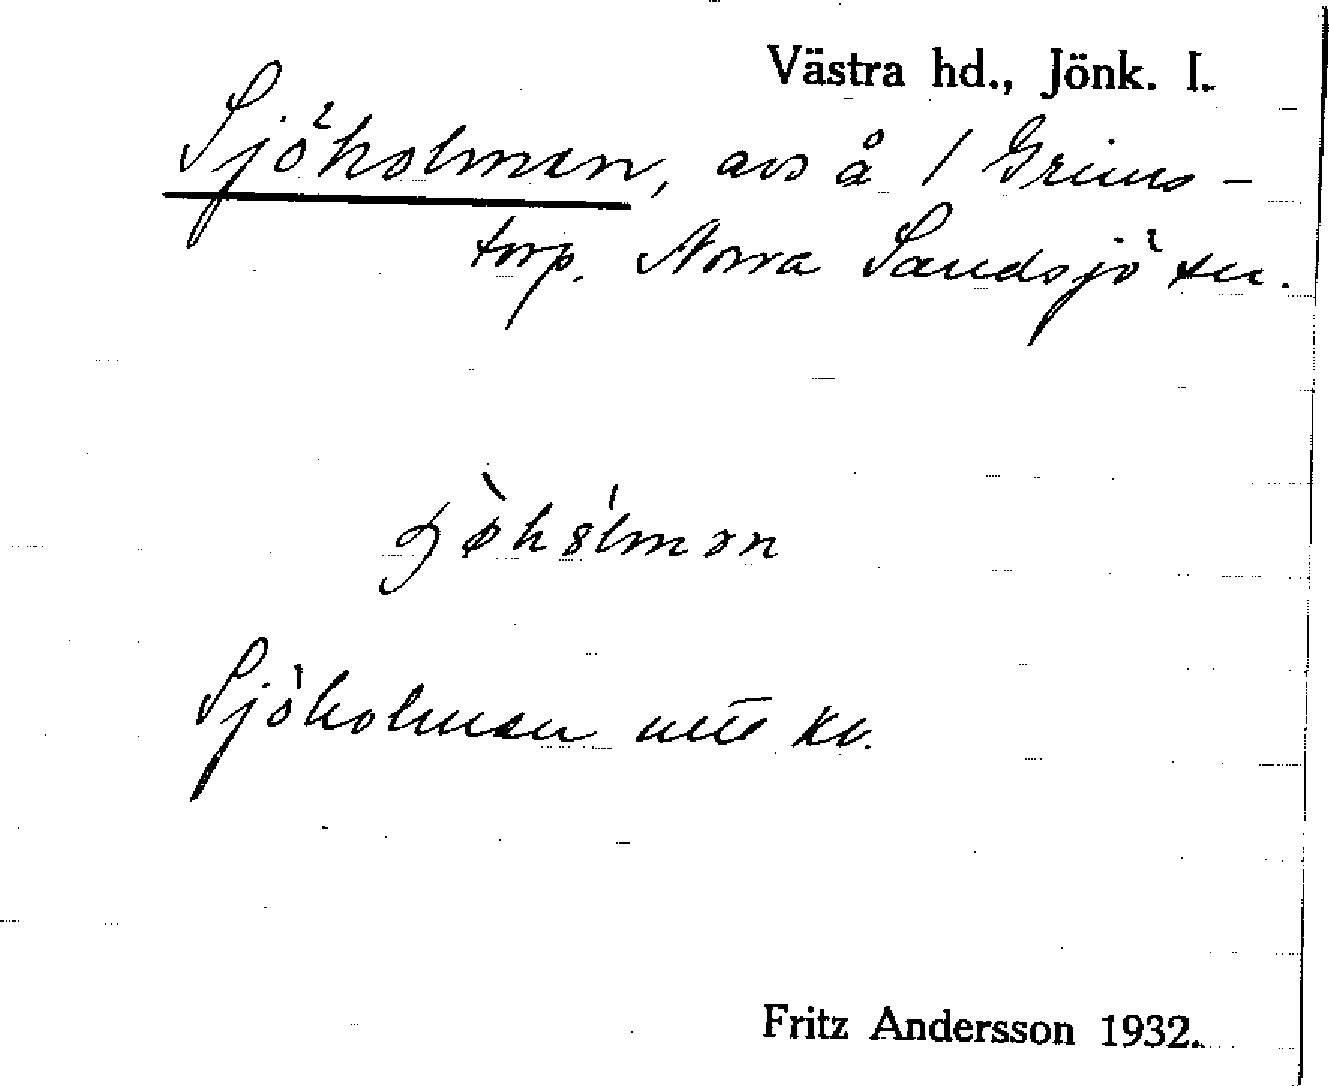 Västra hd., Jönk. l.
Sjöholmen, avs å / Grims-
torp. Norra Sandsjö sn.
Sjöholmen
Fritz Andersson 1932.